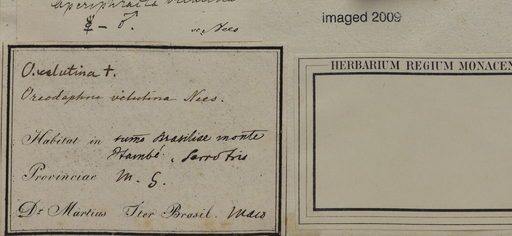 Aperiphracta velutina
☿ - ♂. Nees
imaged 2009
O. velutina †.
Oreodaphne velutina Nees.
Habitat in summo Brasiliae monte
Itambé, Serro frio
Provinciae M. G.
Dr Martius Iter Brasil. Maio
HERBARIUM REGIUM MONACEN